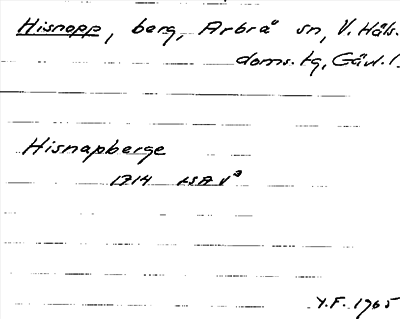 Hisnopp, berg, Arbrå sn, V. Häls.
doms. tg, Gävl. l.
Hisnapberge
1714 LSA V³
Y.F. 1965